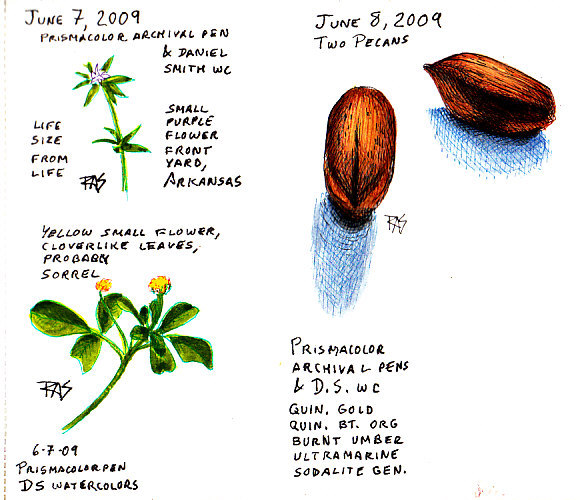 June 7, 2009
Prismacolor Archival Pen
& Daniel
Smith WC
Life
Size
From
Life
Small
Purple
Flower
Front
Yard,
Arkansas
RAS
Yellow Small Flower,
Cloverlike Leaves,
Probably
Sorrel
RAS
6-7-09
Prismacolor Pen
DS Watercolors
June 8, 2009
Two Pecans
RAS
Prismacolor
Archival Pens
& D.S. WC
Quin. Gold
Quin. Bt. Org
Burnt Umber
Ultramarine
Sodalite Gen.